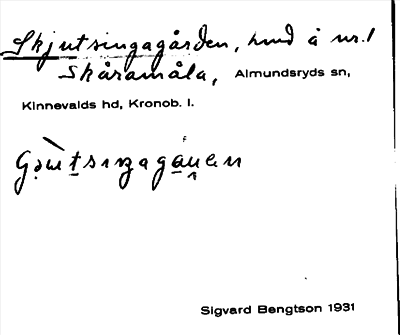 Skjutsingagården, hmd å nr. 1
Skåramåla, Almundsryds sn,
Kinnevalds hd, Kronob. l.
Sigvard Bengtson 1931